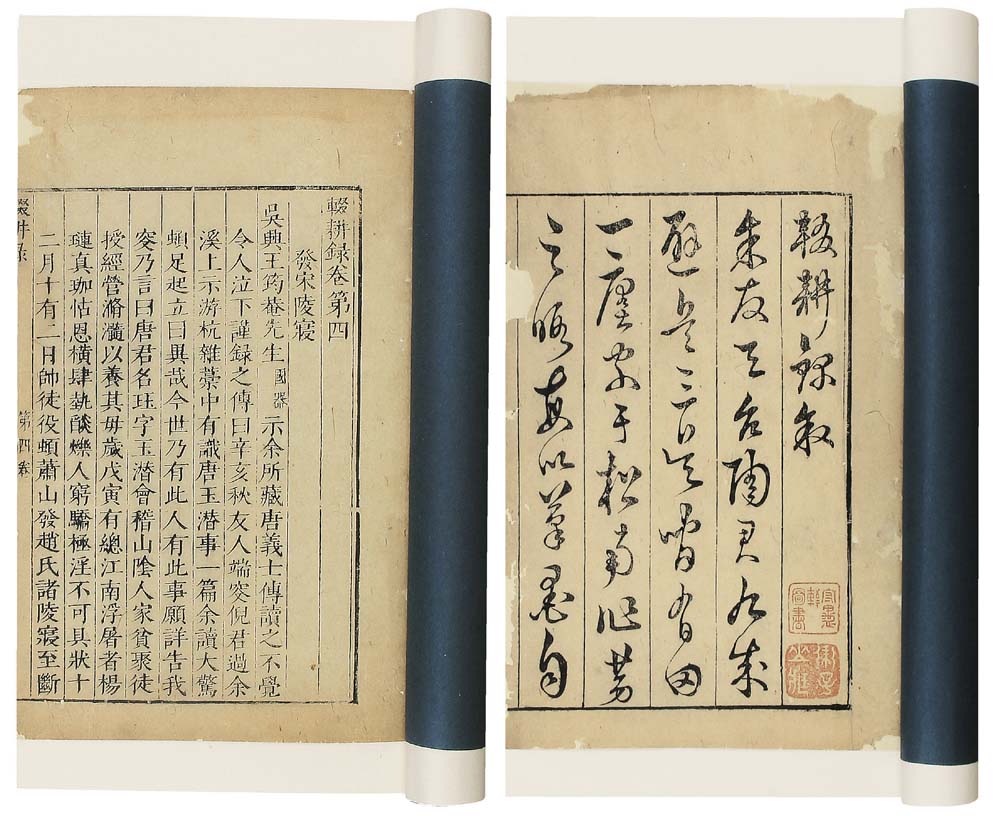 輟耕錄叙
余友天台陶君九成
避兵三吳間有田
一廛家于松南作勞
之暇每以筆墨自
輟耕録卷第四
發宋陵寢
吳興王筠菴先生國器示余所藏唐義士傳讀之不覺
令人泣下謹録之傳曰辛亥秋友人端叜倪君過余
溪上示游杭雜藁中有識唐玉潛事一篇余讀大驚
頓足起立曰異哉今世乃有此人有此事願詳告我
叜乃言曰唐君名珏字玉潛會稽山陰人家貧聚徒
授經營滫瀡以養其母歲戊寅有總江南浮屠者楊
璉真珈怙恩橫肆埶燄爍人窮驕極淫不可具狀十
二月十有二日帥徒役頓蕭山發趙氏諸陵寢至斷
第四卷